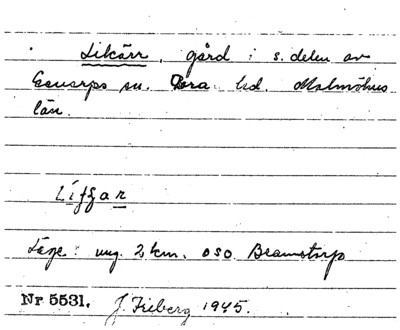 Likärr, gård i s. delen av
Genarps sn. Bara hd. Malmöhus
län.
Läge: ung. 2 km. oso. Bramstorp
Nr 5531. J. Friberg 1945.